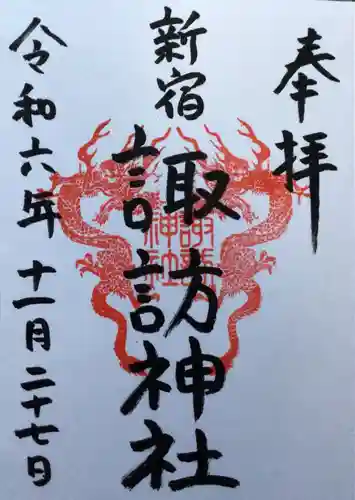 奉拝
新宿
諏訪神社
諏訪
神社
令和六年十一月二十七日